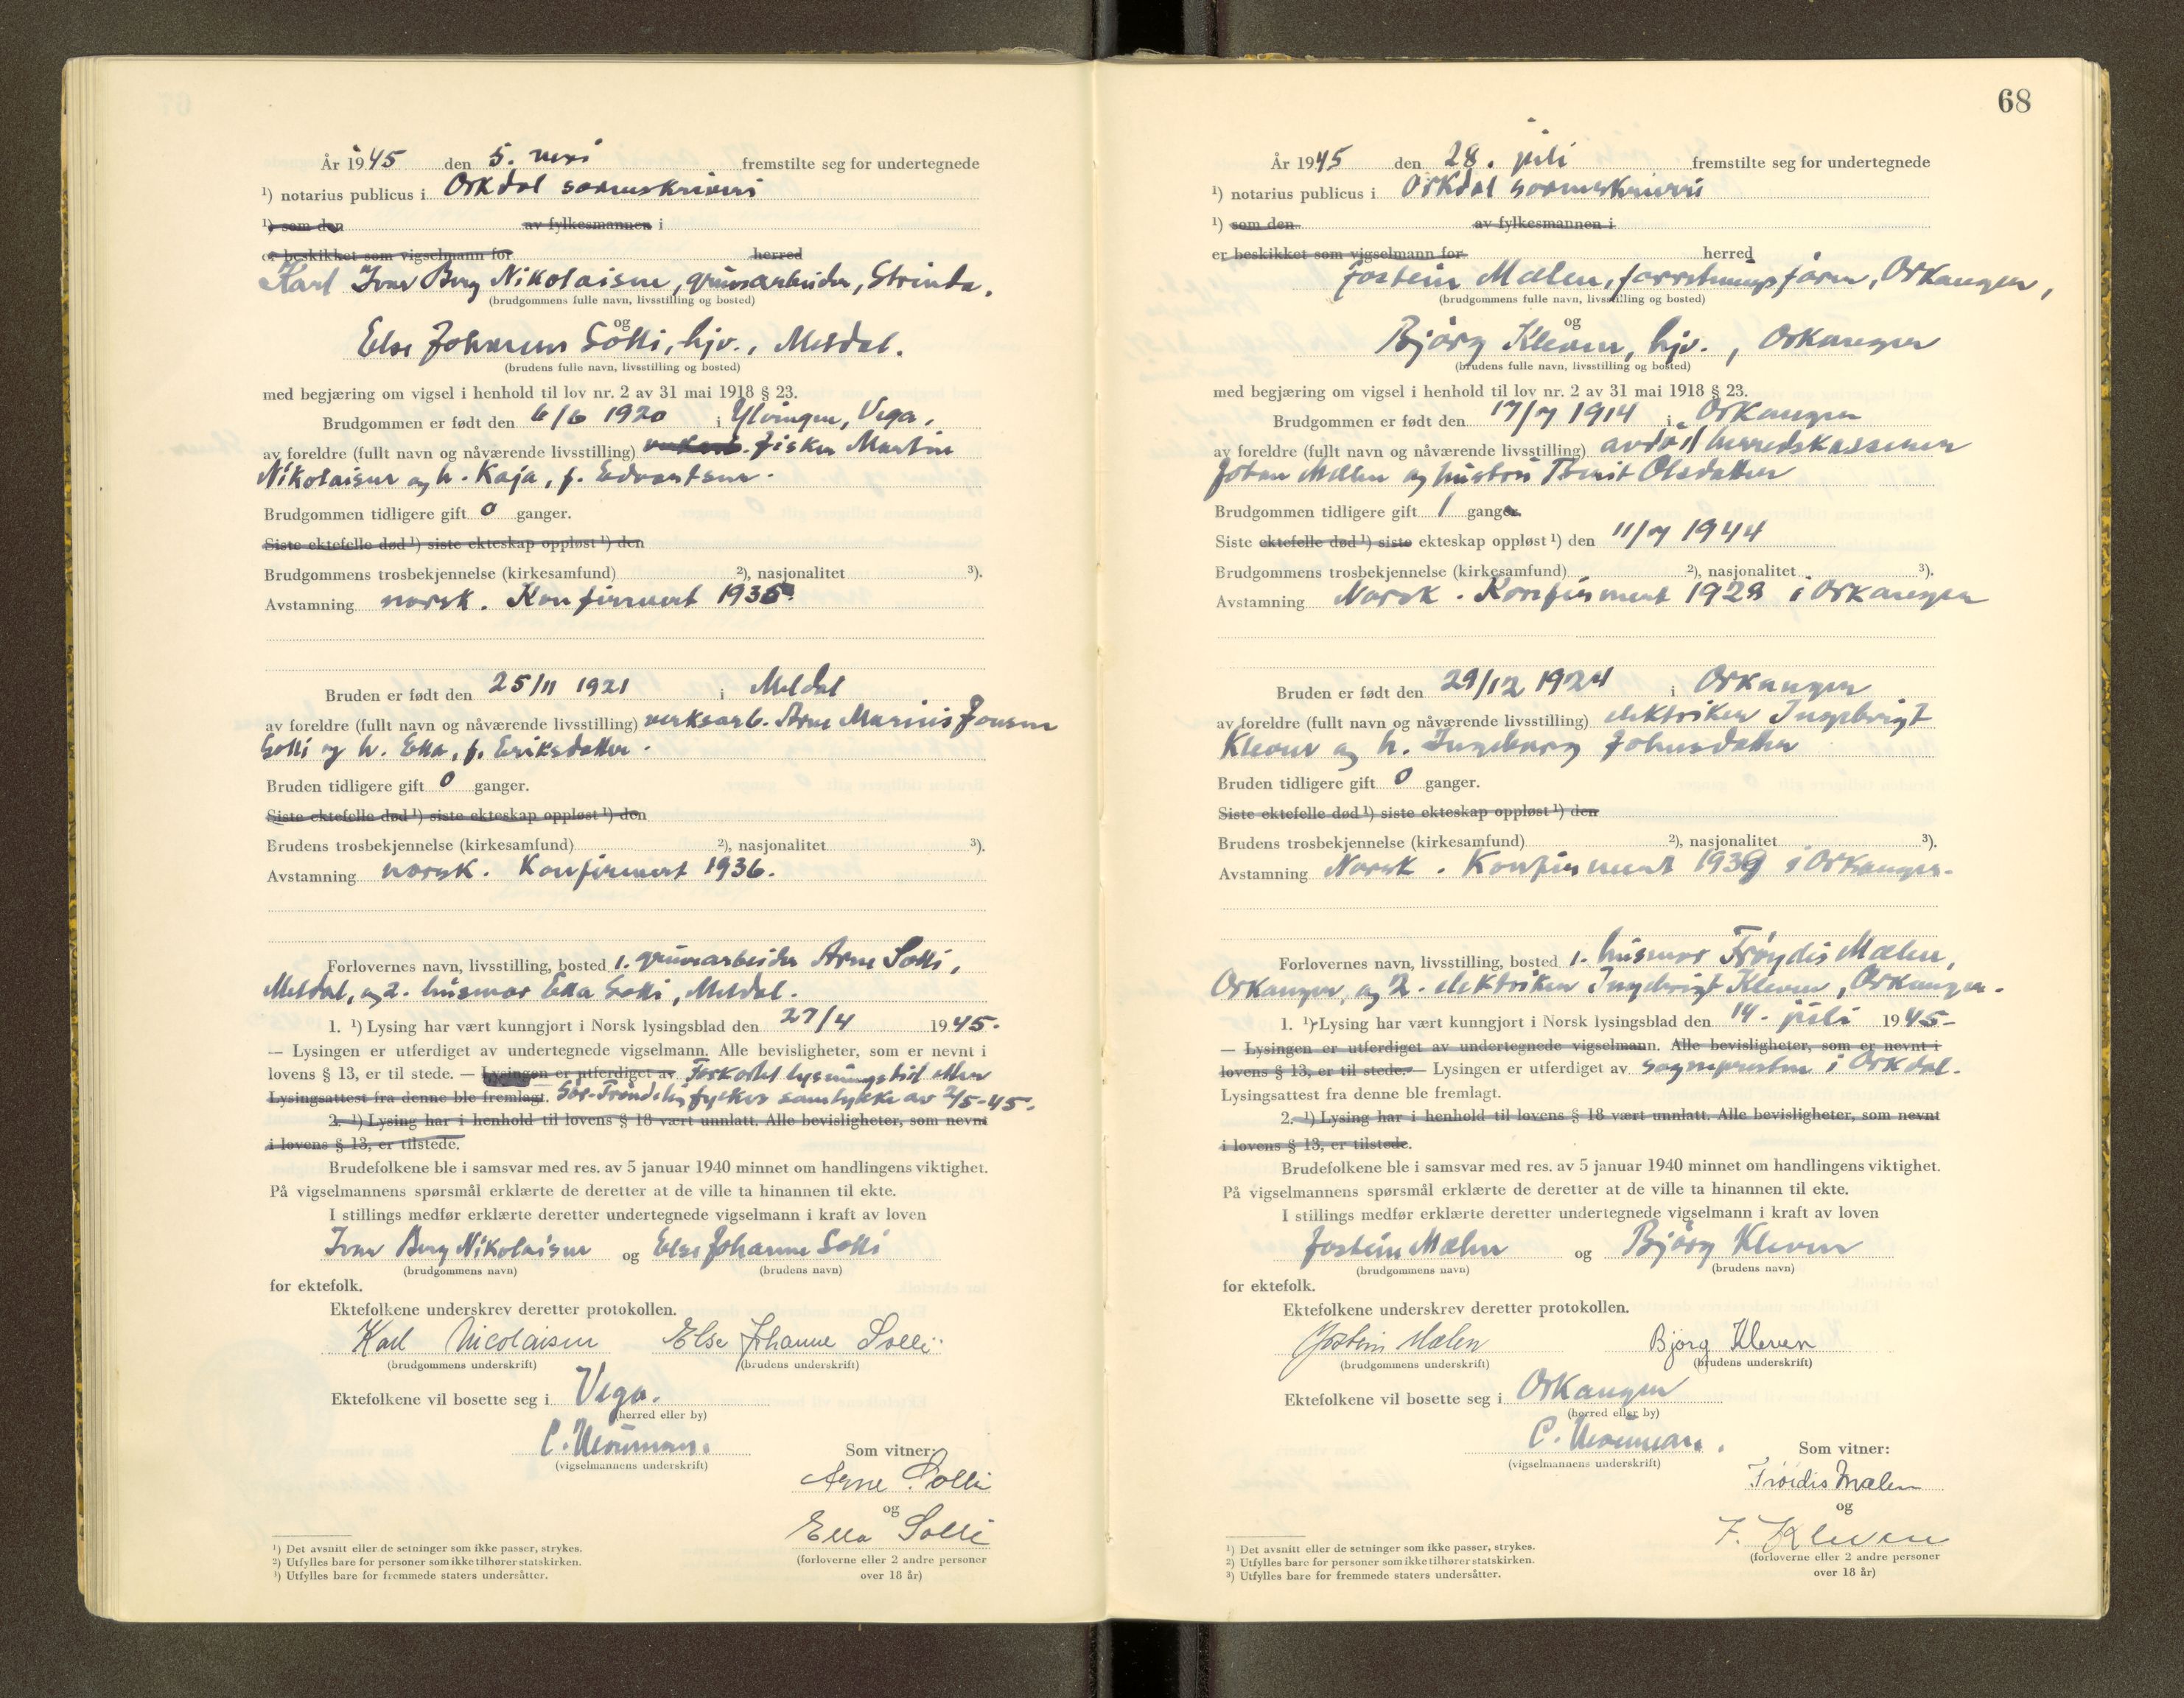 År 1945 den 5. mai fremstilte seg for undertegnede
¹) notarius publicus i Orkdal sorenskriveri
¹) som den av fylkesmannen i
er beskikket som vigselmann for herred
Karl Ivar Berg Nikolaisen, gruvearbeider, Strinda.
(brudgommens fulle navn, livsstilling og bosted)
og
Else Johanne Solli, hjv., Meldal.
(brudens fulle navn, livsstilling og bosted)
med begjæring om vigsel i henhold til lov nr. 2 av 31 mai 1918 § 23.
Brudgommen er født den 6/6 1920 i Ylvingen, Vega,
av foreldre (fullt navn og nåværende livsstilling) fisker Martin
Nikolaisen og h. Kaja, f. Edvardsen.
Brudgommen tidligere gift 0 ganger.
Siste ektefelle død ¹) siste ekteskap oppløst ¹) den
Brudgommens trosbekjennelse (kirkesamfund) ²), nasjonalitet ³).
Avstamning norsk. Konfirmert 1935
Bruden er født den 25/11 1921 i Meldal
av foreldre (fullt navn og nåværende livsstilling) verksarb. Arne Marinis Jonsen
Solli og h. Ella, f. Eriksdatter.
Bruden tidligere gift 0 ganger.
Siste ektefelle død ¹) siste ekteskap oppløst ¹) den
Brudens trosbekjennelse (kirkesamfund) ²), nasjonalitet ³).
Avstamning norsk. Konfirmert 1936.
Forlovernes navn, livsstilling, bosted 1. gruvearbeider Arne Solli,
Meldal, og 2. husmor Ella Solli, Meldal.
1. ¹) Lysing har vært kunngjort i Norsk lysingsblad den 27/4 1945.
— Lysingen er utferdiget av undertegnede vigselmann. Alle bevisligheter, som er nevnt i
lovens § 13, er til stede. — Lysingen er utferdiget av Forkortet lysningstid etter
Lysingsattest fra denne ble fremlagt. Sør-Trøndelag fylkes samtykke av 2/5-45.
2. ¹) Lysing har i henhold til lovens § 18 vært unnlatt. Alle bevisligheter, som nevnt
i lovens § 13, er tilstede.
Brudefolkene ble i samsvar med res. av 5 januar 1940 minnet om handlingens viktighet.
På vigselmannens spørsmål erklærte de deretter at de ville ta hinannen til ekte.
I stillings medfør erklærte deretter undertegnede vigselmann i kraft av loven
Ivar Berg Nikolaisen og Else Johanne Solli
(brudgommens navn) (brudens navn)
for ektefolk.
Ektefolkene underskrev deretter protokollen.
Karl Nicolaisen Else Johanne Solli
(brudgommens underskrift) (brudens underskrift)
Ektefolkene vil bosette seg i Vega.
(herred eller by)
C.
(vigselmannens underskrift)
Som vitner:
Arne Solli
og
Ella Solli
(forloverne eller 2 andre personer
over 18 år)
¹) Det avsnitt eller de setninger som ikke passer, strykes.
²) Utfylles bare for personer som ikke tilhører statskirken.
³) Utfylles bare for fremmede staters undersåtter.
68
År 1945 den 28. juli fremstilte seg for undertegnede
¹) notarius publicus i Orkdal sorenskriveri
¹) som den av fylkesmannen i
er beskikket som vigselmann for herred
Jostein Mælen, forretningsfører, Orkanger,
(brudgommens fulle navn, livsstilling og bosted)
og
Bjørg Kleven, hjv., Orkanger
(brudens fulle navn, livsstilling og bosted)
med begjæring om vigsel i henhold til lov nr. 2 av 31 mai 1918 § 23.
Brudgommen er født den 17/7 1914 i Orkanger
av foreldre (fullt navn og nåværende livsstilling) avdød herredskasserer
Johan Mælen og hustru Berit Olsdatter
Brudgommen tidligere gift 1 ganger.
Siste ektefelle død ¹) siste ekteskap oppløst ¹) den 11/7 1944
Brudgommens trosbekjennelse (kirkesamfund) ²), nasjonalitet ³).
Avstamning Norsk. Konfirmert 1928 i Orkanger
Bruden er født den 29/12 1924 i Orkanger
av foreldre (fullt navn og nåværende livsstilling) elektriker Ingebrigt
Kleven og h. Ingeborg Johnsdatter
Bruden tidligere gift 0 ganger.
Siste ektefelle død ¹) siste ekteskap oppløst ¹) den
Brudens trosbekjennelse (kirkesamfund) ²), nasjonalitet ³).
Avstamning Norsk. Konfirmert 1939 i Orkanger.
Forlovernes navn, livsstilling, bosted 1. husmor Frøydis Mælen,
Orkanger, og 2. elektriker Ingebrigt Kleven, Orkanger.
1. ¹) Lysing har vært kunngjort i Norsk lysingsblad den 14. juli 1945–
— Lysingen er utferdiget av undertegnede vigselmann. Alle bevisligheter, som er nevnt i
lovens § 13, er til stede. — Lysingen er utferdiget av sognepresten i Orkdal.
Lysingsattest fra denne ble fremlagt.
2. ¹) Lysing har i henhold til lovens § 18 vært unnlatt. Alle bevisligheter, som nevnt
i lovens § 13, er tilstede.
Brudefolkene ble i samsvar med res. av 5 januar 1940 minnet om handlingens viktighet.
På vigselmannens spørsmål erklærte de deretter at de ville ta hinannen til ekte.
I stillings medfør erklærte deretter undertegnede vigselmann i kraft av loven
Jostein Mælen og Bjørg Kleven
(brudgommens navn) (brudens navn)
for ektefolk.
Ektefolkene underskrev deretter protokollen.
Jostein Mælen Bjørg Kleven
(brudgommens underskrift) (brudens underskrift)
Ektefolkene vil bosette seg i Orkanger
(herred eller by)
C.
(vigselmannens underskrift)
Som vitner:
Frøidis Mælen
og
I. Kleven
(forloverne eller 2 andre personer
over 18 år)
¹) Det avsnitt eller de setninger som ikke passer, strykes.
²) Utfylles bare for personer som ikke tilhører statskirken.
³) Utfylles bare for fremmede staters undersåtter.